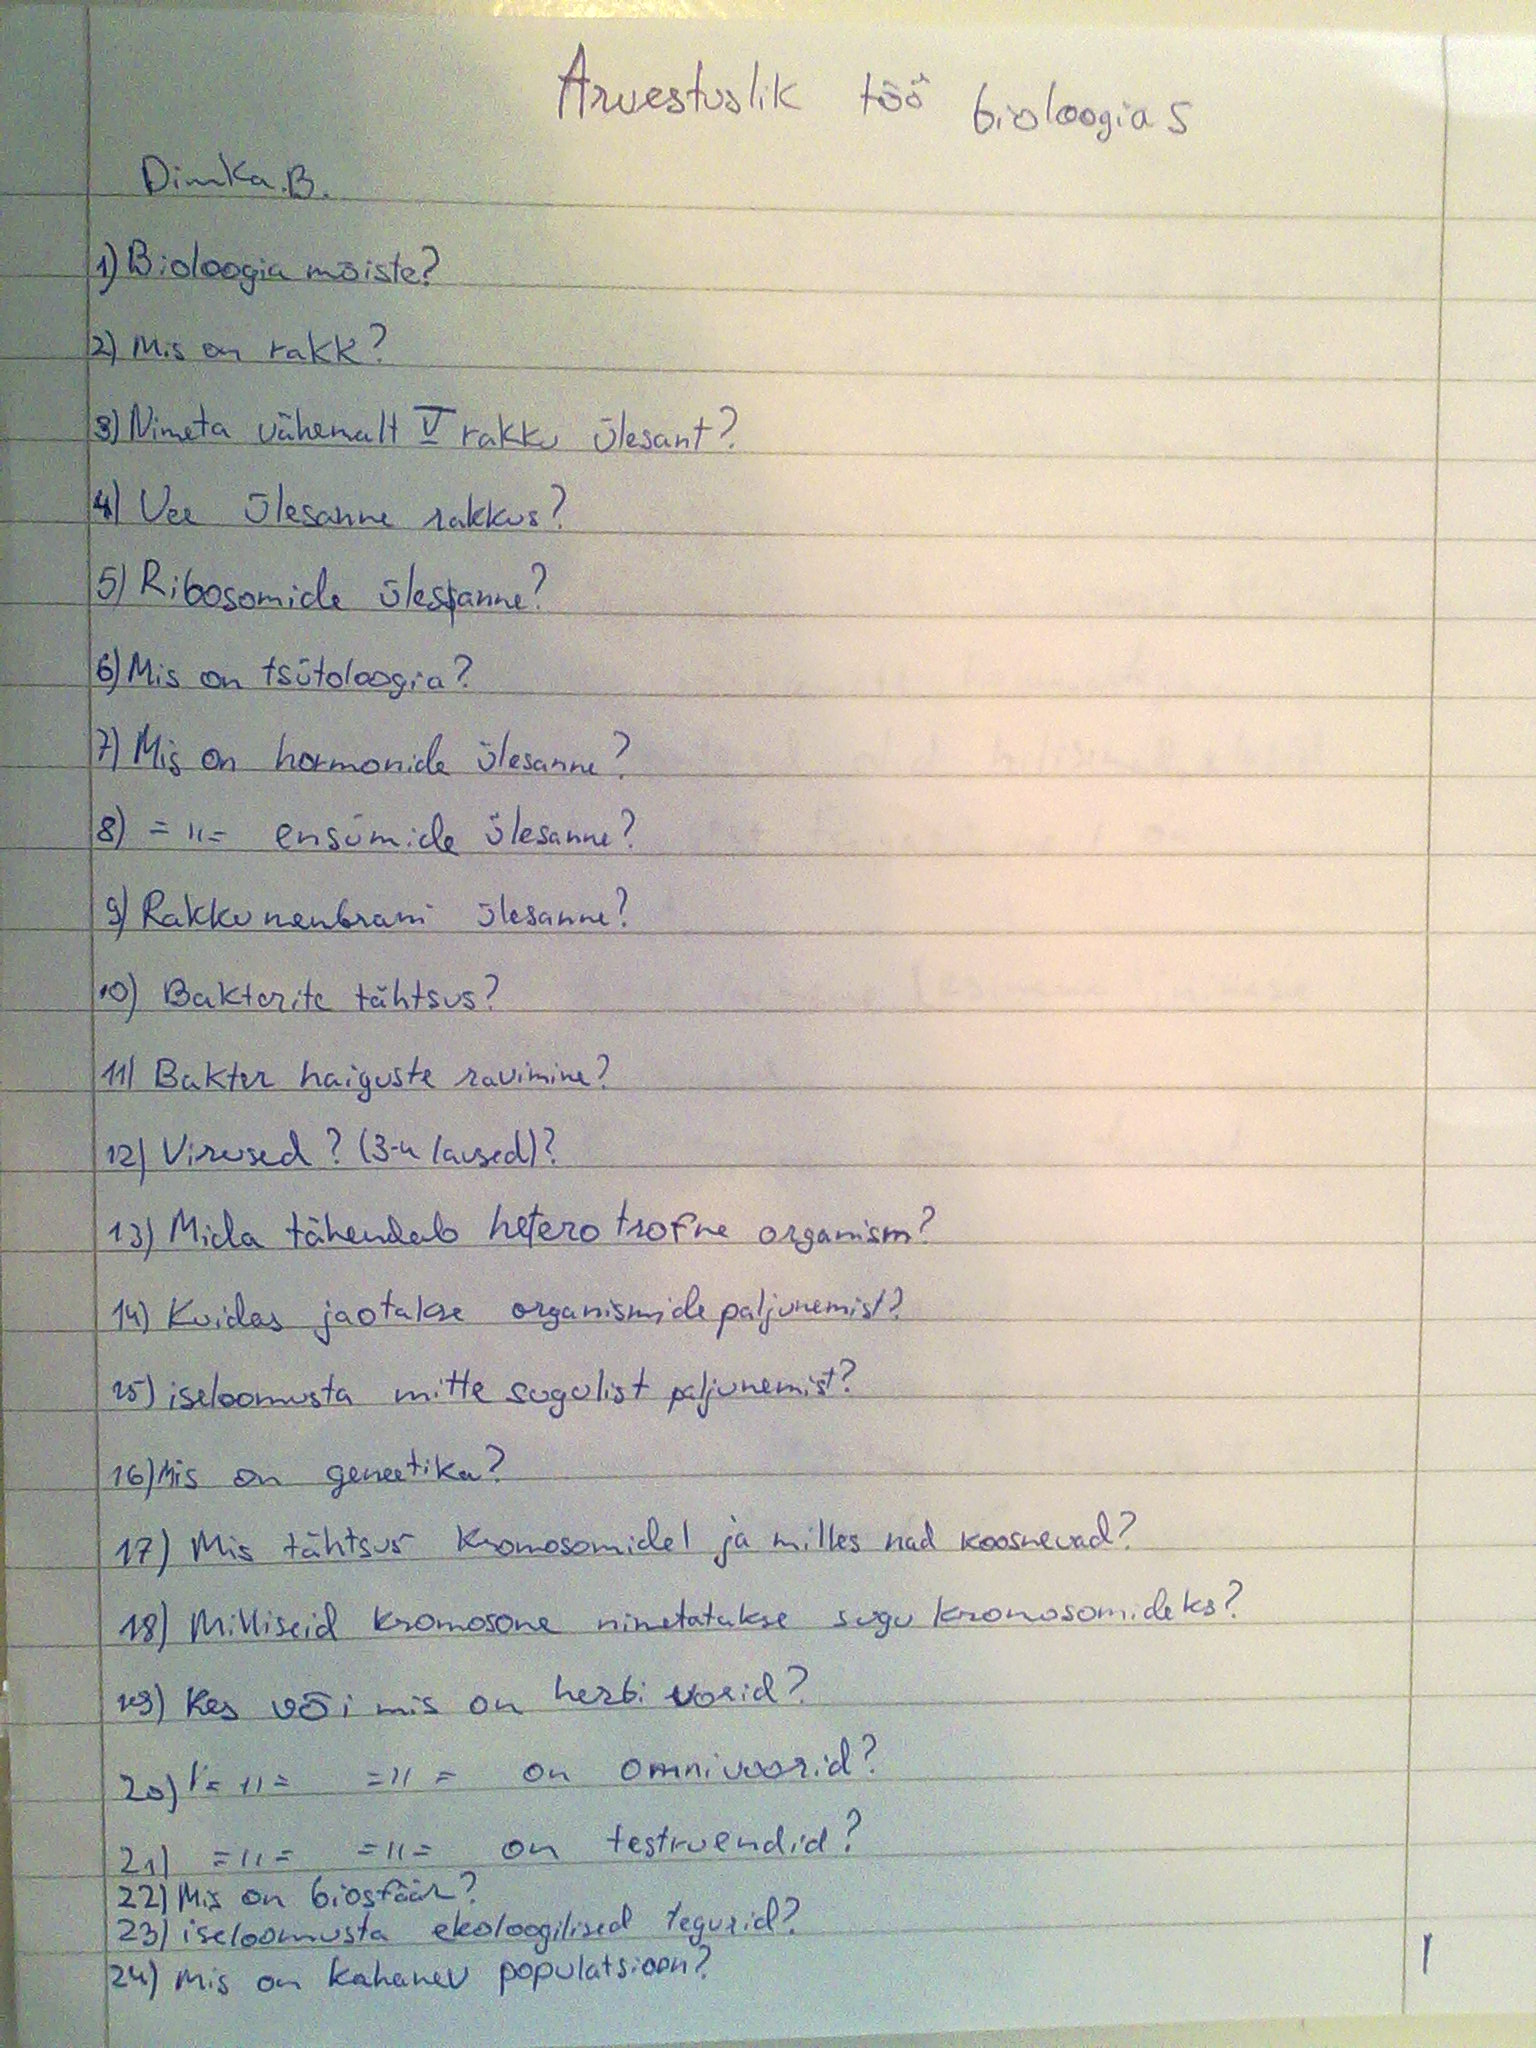 Arvestuslik töö bioloogias
Dimka.B.
1) Bioloogia mõiste?
2) Mis on rakk?
3) Nimeta vähemalt V rakku ülesant?
4) Vee ülesanne rakkus?
5) Ribosomide ülesanne?
6) Mis on tsütoloogia?
7) Mis on hormonide ülesanne?
8) =〃= ensümide ülesanne?
9) Rakku nenbrani ülesanne?
10) Bakterite tähtsus?
11) Bakter haiguste ravimine?
12) Virused? (3-4 laused)?
13) Mida tähendab heterotrofne organism?
14) Kuidas jaotakse organismide paljunemist?
15) iseloomusta mitte sugulist paljunemist?
16) Mis on geneetika?
17) Mis tähtsus kromosomidel ja milles nad koosnevad?
18) Milliseid kromosome nimetatakse sugu kromosomideks?
19) Kes või mis on herbivorid?
20) =〃= =〃= on omnivoorid?
21) =〃= =〃= on testruendid?
22) Mis on biosfäär?
23) iseloomusta ekoloogilised tegurid?
24) Mis on kahanev populatsioon?